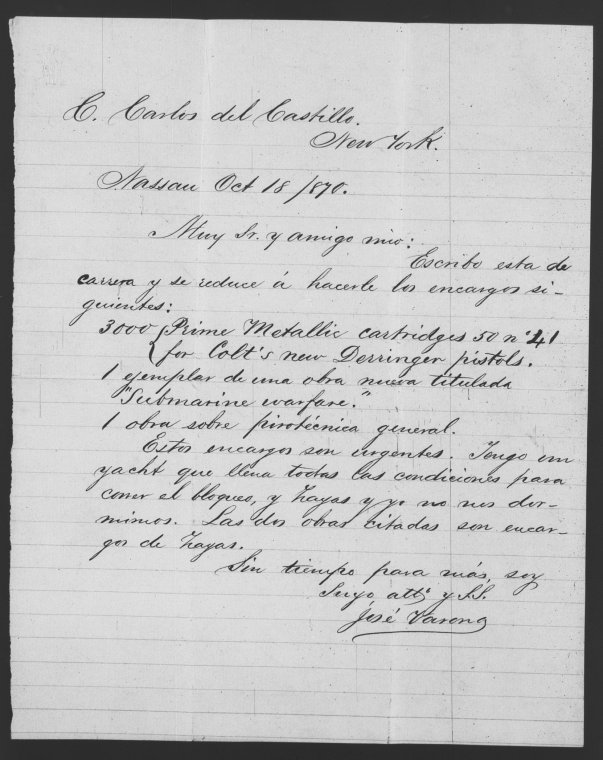 C. Carlos del Castillo.
New York.
Nassau Oct 18/870.
Muy Sr. y amigo mio:
Escribo esta de
carrera y se reduce á hacerle los encargos si-
guientes:
3000 { Prime Metallic cartridges 50 nº 41
for Colt's new Derringer pistols.
1 ejemplar de una obra nueva titulada
"Submarine warfare."
1 obra sobre pirotécnica general.
Estos encargos son urgentes. Tengo un
yacht que llena todas las condiciones para
correr el bloqueo, y Zayas y yo no nos dor-
mimos. Las dos obras citadas son encar-
gos de Zayas.
Sin tiempo para más, soy
Suyo atto y S.S.
José Varona